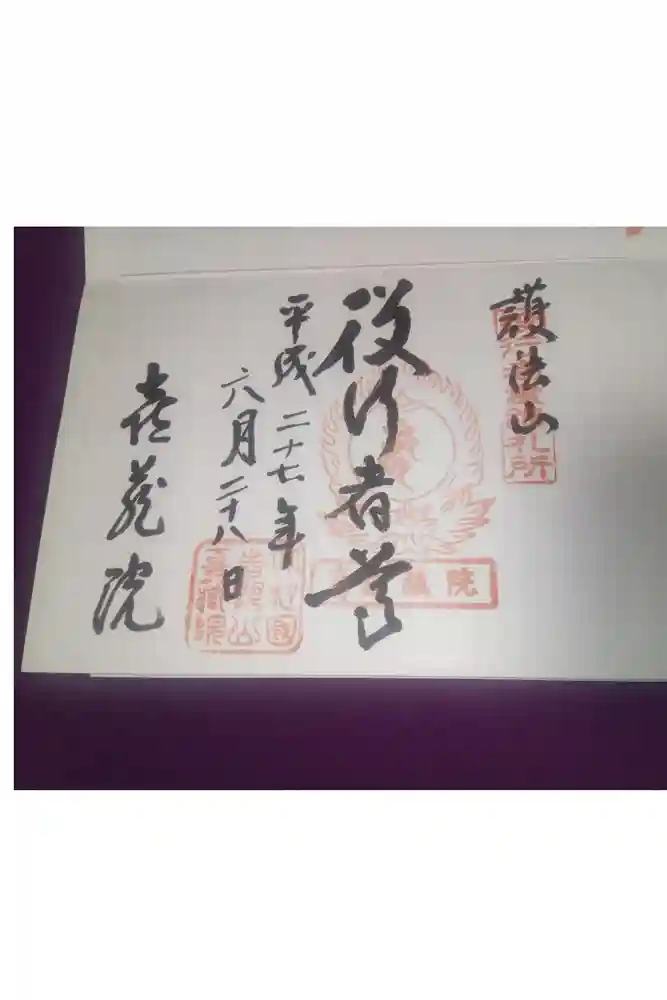 護法山
役行者尊
平成二十七年
六月二十八日
喜蔵院